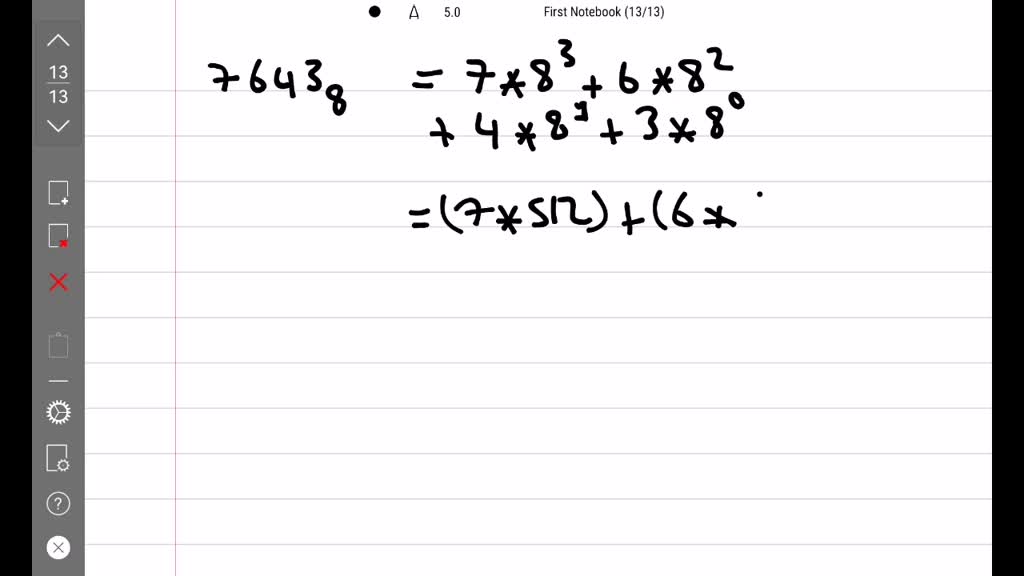 5.0 First Notebook (13/13)
13
13
7643₈ = 7*8³ + 6*8²
+ 4*8¹ + 3*8⁰
= (7*512) + (6*